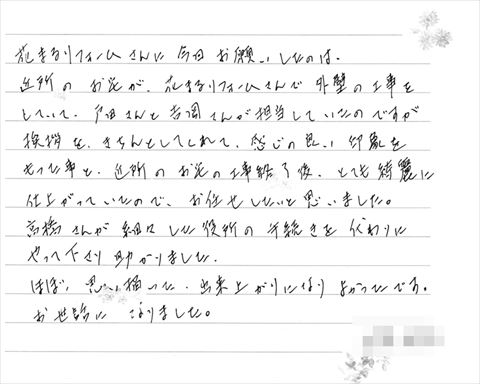 花まるリフォームさんに今回お願いしたのは、
近所のお宅が、花まるリフォームさんで外壁の工事を
していて、戸田さんと吉岡さんが担当していたのですが
挨拶を、きちんとしてくれて、感じの良い印象を
もった事と、近所のお宅の工事終了後、とても綺麗に
仕上がっていたので、お任せしたいと思いました。
高橋さんが細々した役所の手続きを代わりに
やって下さり助かりました。
ほぼ、思い描った、出来上がりになりよかったです。
お世話になりました。